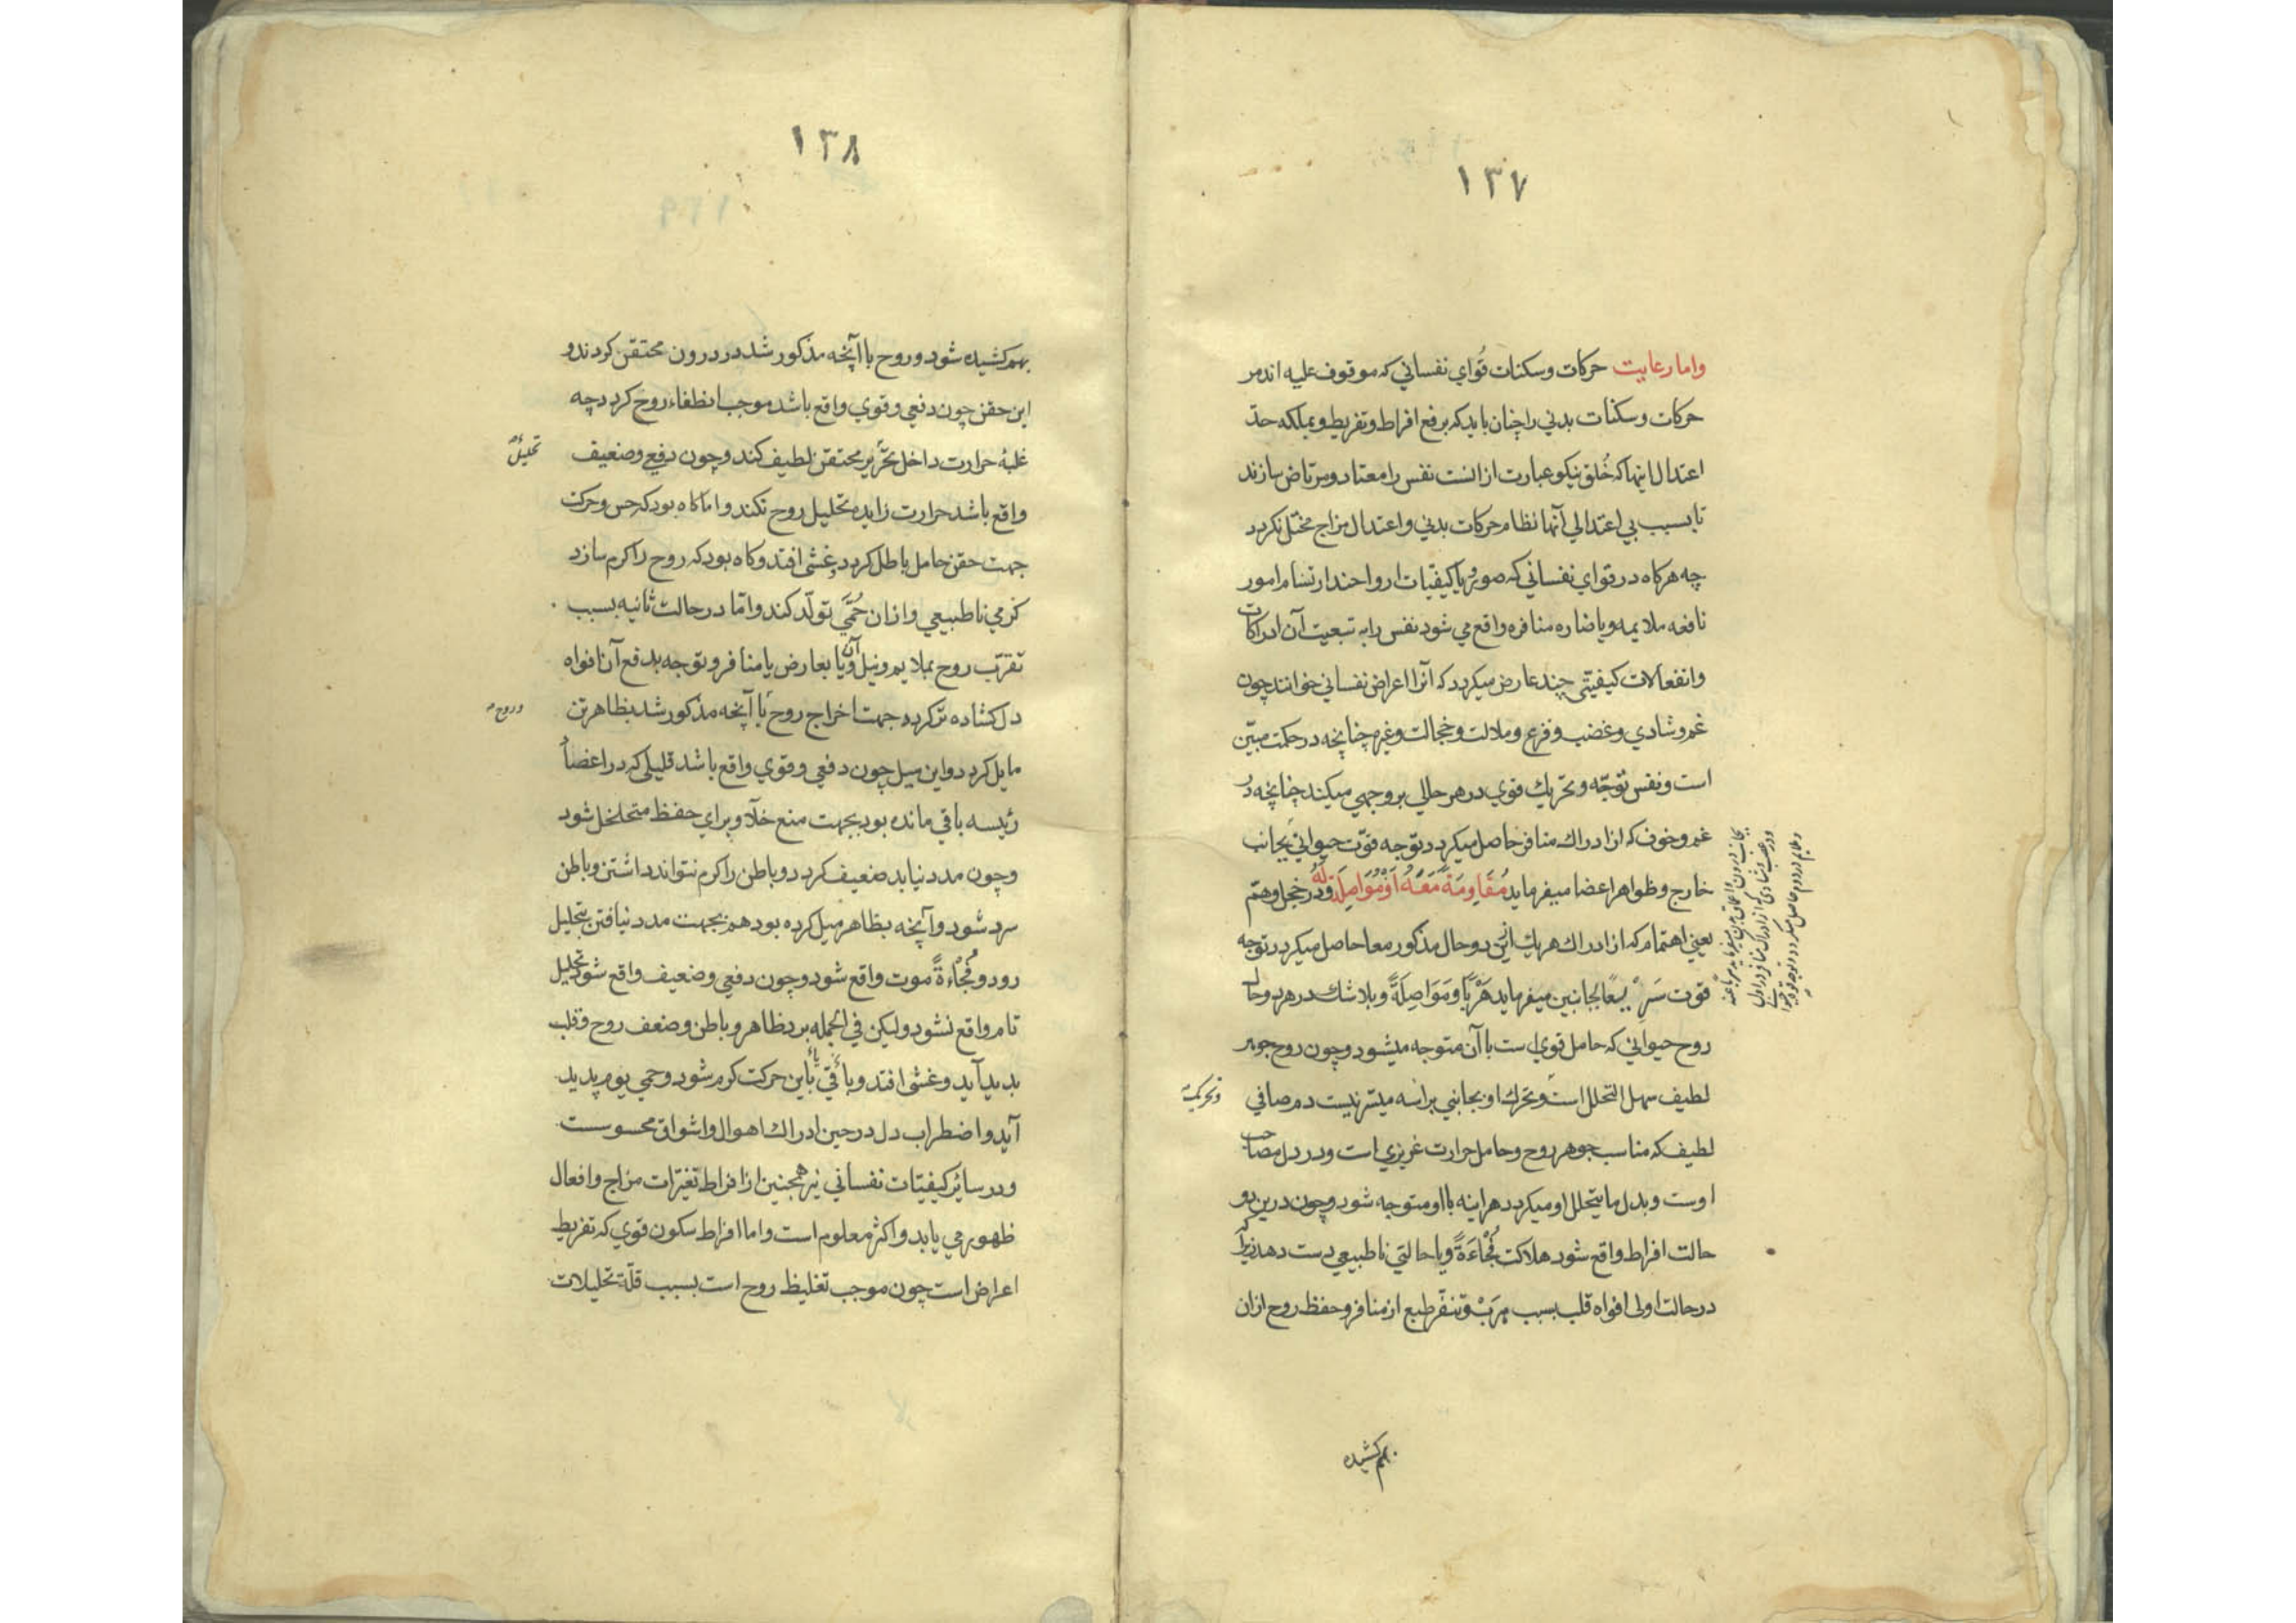 ١٣٧
واما رعایت حرکات وسکنات قوای نفسانی که موقوف علیه اندمر
حرکات وسکنات بدنی را چنان باید که برفع افراط وتفریط وبملکه حدّ
اعتدال اینها که خُلق نیکو عبارت از انست نفس را معتاد ومرتاض سازند
تا بسبب بی اعتدالی آنها نظام حرکات بدنی واعتدال مزاج مختل نکردد
چه هرکاه در قوای نفسانی که صور ویا کیفیات ارواحند ارتسام امور
نافعه ملایمه ویا ضاره منافره واقع می شود نفس را به تبعیت آن ادراکات
وانفعالات کیفیتی چند عارض میکردد که آنرا اعراض نفسانی خوانند چون
غم وشادی وغضب وفزع وملالت وخجالت وغیره چنانچه در حکمت مبیّن
است ونفس توجّه وتحریك قوی در هر حالی بر وجهی میکند چنانچه در
غم وخوف که از ادراك منافر حاصل میکردد توجه قوّت حیوانی بجانب
خارج وظواهر اعضا میفرماید مُقَاوِمَةً مَعَهُ اَوْ مُوَاصِلَةً لَهُ ودر خجل وهمّ
یعنی اهتمام که از ادراك هر یك ازین دو حال مذکور معا حاصل میکردد توجه
قوّت سَرِیعًا بجانبین میفرماید هَرَبًا ومَوَاصِلَةً وبلا شك در هر دو حال
روح حیوانی که حامل قوی است با آن متوجه میشود وچون روح جوهر
لطیف سهل التحلل است وتحرك او بجانبی براسه میسّر نیست دم صافی
وتحرکیة
لطیف که مناسب جوهر روح وحامل حرارت غریزی است ودر دل مصاحب
اوست وبدل ما یتحلل او میکردد هراینه با او متوجه شود وچون درین دو
حالت افراط واقع شود هلاکت فُجْاءَةً ویا حالتی ناطبیعی دست دهد زیرا که
در حالت اولی افواه قلب بسبب هرب وتنفّر طبع از منافر وحفظ روح ازان
بجانب درون واعماق بدن میفرماید هربا عنه
ودر غضب وشادی که از ادراك منافر در اول
وملایم در دوم حاصل میکردد توجه قوت حیوانی
بهم کشیده
١٣٨
بهم کشیده شود وروح با آنچه مذکور شد در درون محتقن کردند و
این حقن چون دفعی وقوی واقع باشد موجب انطفاء روح کردد چه
غلبهٔ حرارت داخل بحرّ پر محتقن لطیف کند وچون دفعی وضعیف
تحلیل
واقع باشد حرارت زایده تحلیل روح نکند واما کاه بود که حس وحرکت
جهت حقن حامل باطل کردد وغشی افتد وکاه بود که روح را کرم سازد
کرمی ناطبیعی وازان حُمّی تولّد کند وامّا در حالت ثانیه بسبب
تقرّب روح بملایم ونیل آن ویا بعارض یا منافر وتوجه بدفع آن افواه
دل کشاده تر کردد جهت اخراج روح با آنچه مذکور شد بظاهر تن
وروح
مایل کردد واین میل چون دفعی وقوی واقع باشد قلیلی که در اعضاء
رئیسه باقی مانده بود بجهت منع خلآ وبرای حفظ متخلخل شود
وچون مدد نیابد ضعیف کردد وباطن را کرم نتواند داشتن وباطن
سرد شود وآنچه بظاهر میل کرده بود هم بجهت مدد نیافتن بتحلیل
رود وفُجْاءةً موت واقع شود وچون دفعی وضعیف واقع شود تحلیل
تام واقع نشود ولیکن فی الجمله برد ظاهر وباطن وضعف روح وقلب
بدید آید وغشی افتد ویا باین حرکت کرم شود وحمی یوم پدید
آید واضطراب دل در حین ادراك اهوال واشواق محسوسست
ودر سائر کیفیّات نفسانی نیز همچنین از افراط تغیّرات مزاج وافعال
ظهور می یابد واکثر معلوم است واما افراط سکون قوی که تفریط
اعراض است چون موجب تغلیظ روح است بسبب قلّة تحلیلات